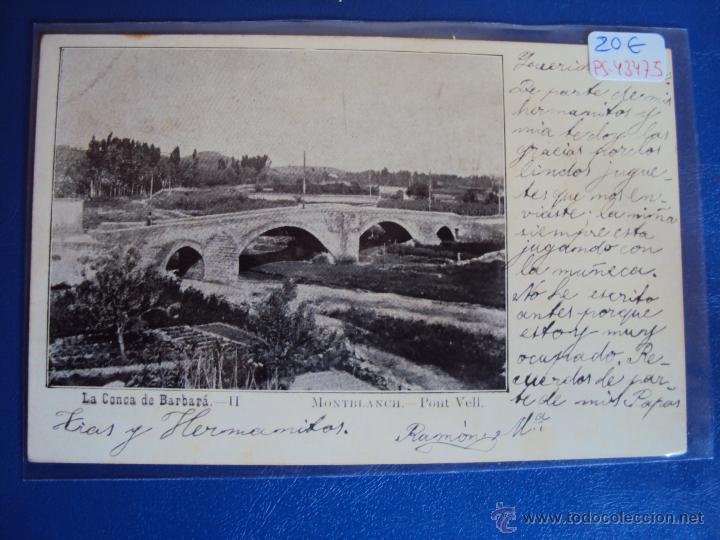 20€
PS-43475
De parte de mis
hermanitos y
mia te doy las
gracias por los
lindos jugue-
tes que nos en-
viaste; la niña
siempre esta
jugando con
la muñeca.
No he escrito
antes porque
estoy muy
ocupado. Re-
cuerdos de par-
te de mis Papas
La Conca de Barbará.—II
MONTBLANCH.—Pont Vell.
Tias y Hermanitos.
Ramón
www.todocoleccion.net